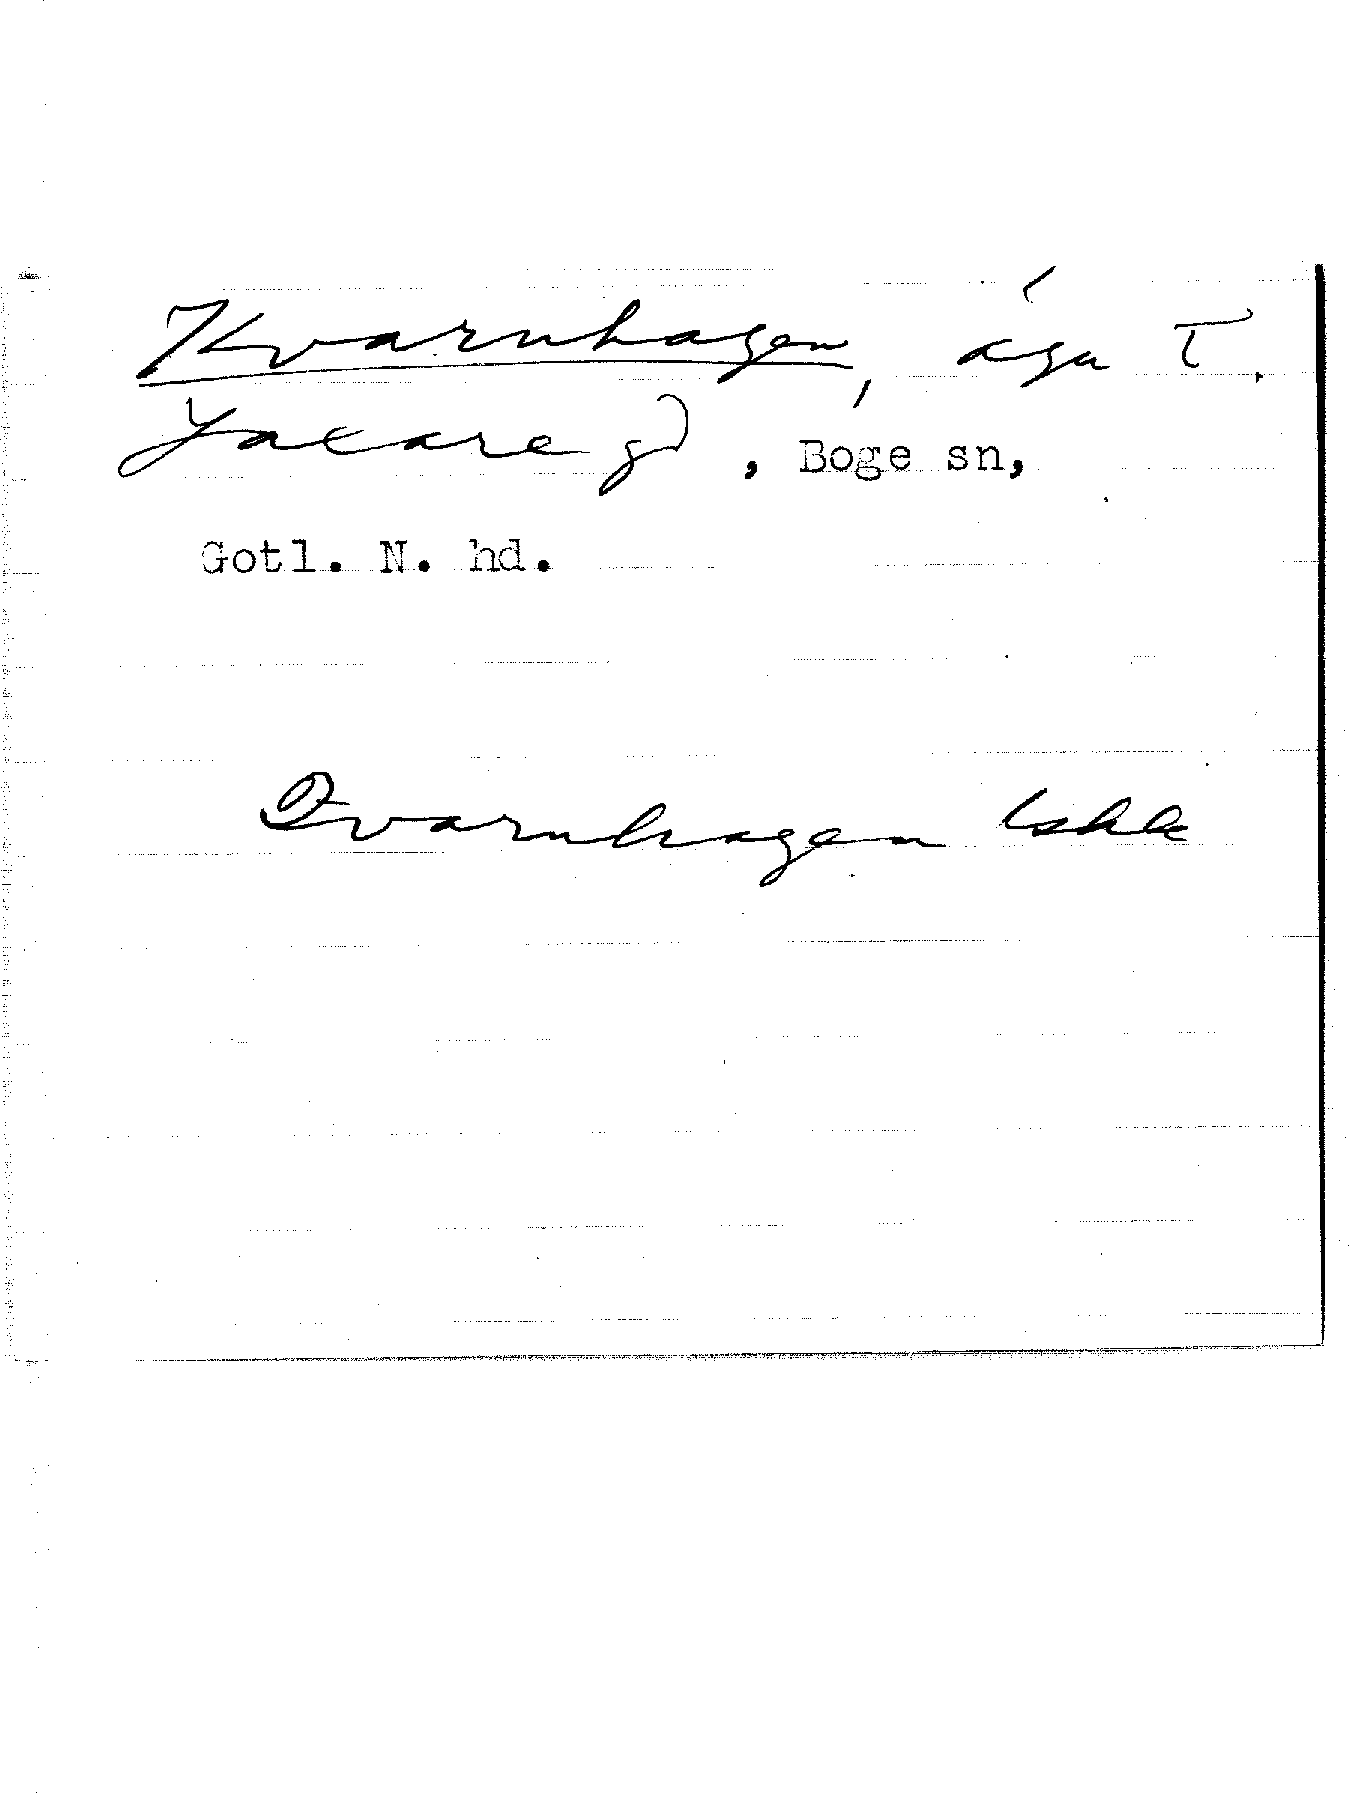 Kvarnhagen, äga t.
Laxare gd, Boge sn,
Gotl. N. hd.
Qvarnhagen